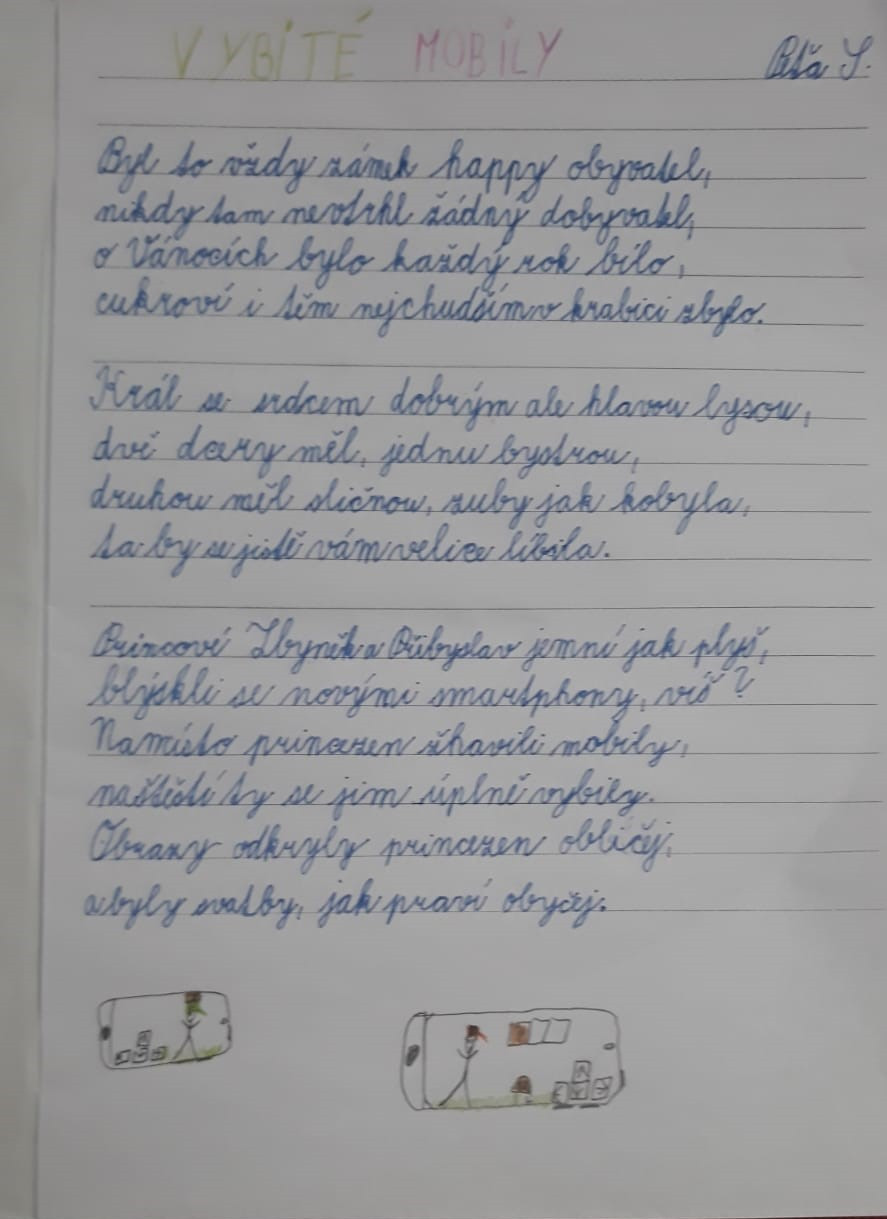 VYBITÉ MOBILY
Péťa S.
Byl to vždy zámek happy obyvatel,
nikdy tam nevtrhl žádný dobyvatel,
o Vánocích bylo každý rok bílo,
cukroví i těm nejchudším v krabici zbylo.
Král se srdcem dobrým ale hlavou lysou,
dvě dcery měl, jednu bystrou,
druhou měl sličnou, zuby jak kobyla,
ta by se jistě vám velice líbila.
Princové Zbyněk a Přibyslav jemní jak plyš,
blýskli se novými smartphony, víš?
Namísto princezen žhavili mobily,
naštěstí ty se jim úplně vybily.
Obrazy odkryly princezen obličej,
a byly svatby, jak praví obyčej.